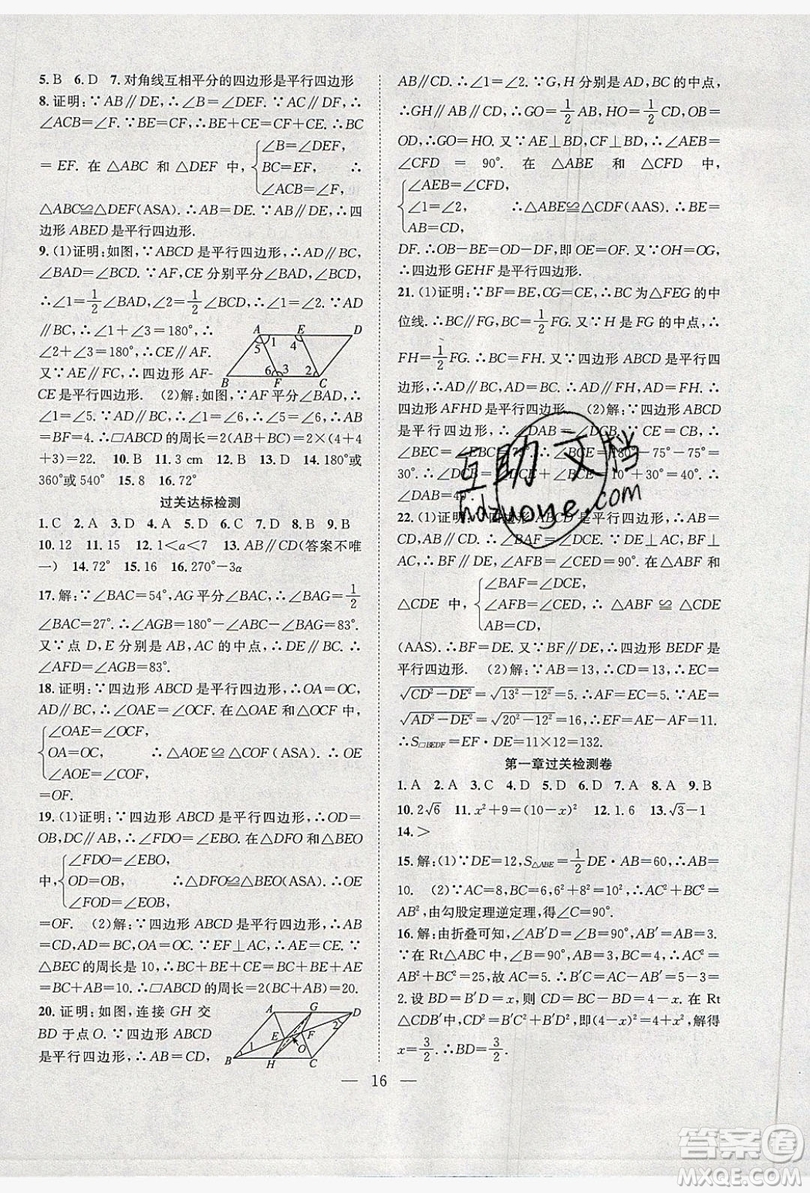 5.B 6.D 7.对角线互相平分的四边形是平行四边形
8.证明:∵AB∥DE,∴∠B=∠DEF.∵AC∥DF,∴
∠ACB=∠F.∵BE=CF,∴BE+CE=CF+CE.∴BC
=EF.在△ABC 和△DEF 中,{∠B=∠DEF, BC=EF, ∠ACB=∠F, ∴
△ABC≌△DEF(ASA).∴AB=DE.又∵AB∥DE,∴四
边形 ABED 是平行四边形.
9.(1)证明:如图,∵四边形 ABCD 是平行四边形,∴
∠BAD=∠BCD.∵AF,CE 分别平分∠BAD,∠BCD,
∴∠1=1/2∠BAD,∠2=1/2∠BCD.∴∠1=∠2.∵AD
∥BC,∴∠1+∠3=180°,∴
∠2+∠3=180°,∴CE∥AF.
又∵AE∥FC,∴四边形 AF-
CE 是平行四边形. (2)解:如图,∵AF 平分∠BAD,
∴∠1=∠5.∵AD∥BC,∴∠1=∠6,∴∠5=∠6,∴AB
=BF=4.∴▱ABCD 的周长=2(AB+BC)=2×(4+4
+3)=22. 10.B 11.3 cm 12.D 13.D 14.180°或
360°或 540° 15.8 16.120°
过关达标检测
1.C 2.A 3.D 4.A 5.D 6.D 7.B 8.B 9.B
10.12 11.15 12.1<a<7 13.AB∥CD(答案不唯
一) 14.72° 15.16 16.270°-3α
17.解:∵∠BAC=54°,AG 平分∠BAC,∴∠BAG=1/2
∠BAC=27°.∴∠AGB=180°-∠B-∠BAG=83°.
又∵点 D,E 分别是 AB,AC 的中点,∴DE∥BC.∴
∠AFD=∠AGB=83°.
18.证明:∵四边形 ABCD 是平行四边形,∴OA=OC,
AB∥CD.∴∠OAE=∠OCF.在△OAE 和△OCF 中,
{∠OAE=∠OCF, OA=OC, ∠AOE=∠COF, ∴△AOE≌△COF(ASA).∴OE
=OF.
19.(1)证明:∵四边形 ABCD 是平行四边形,∴OD=OB,
DC∥AB,∴∠FDO=∠EBO.在△DFO 和△BEO
中,{∠FDO=∠EBO, OD=OB, ∠FOD=∠EOB, ∴△DFO≌△BEO(ASA).∴OE
=OF. (2)解:∵四边形 ABCD 是平行四边形,∴AB
=CD,AD=BC,OA=OC.∵EF⊥AC,∴AE=CE.∵
△BEC 的周长是 10,∴BC+BE+CE=BC+BE+AE=
BC+AB=10.∴▱ABCD 的周长=2(BC+AB)=20.
20.证明:如图,连接 GH 交
BD 于点 O.∵四边形 ABCD
是平行四边形,∴AD=BC,
A E D
1
5
6 3 2
B F C
A G D
2
E F
1 O
B H C
AB∥CD.∴∠1=∠2.∵G,H 分别是 AD,BC 的中点,
∴GH∥AB∥CD.∴GO=1/2AB,HO=1/2CD,OB=
OD.∴GO=HO.又∵AE⊥BD,CF⊥BD,∴∠AEB=
∠CFD = 90°.在△ABE 和△CFD 中,
{∠AEB=∠CFD, ∠1=∠2, AB=CD, ∴△ABE≌△CDF(AAS).∴BE=
DF.∴OB-BE=OD-DF,即 OE=OF.又∵GO=HO,
∴四边形 GEHF 是平行四边形.
21.(1)证明:∵BF=BE,CG=CE,∴BC 为△FEG 的中
位线.∴BC∥FG,BC=1/2FG.又∵H 是 FG 的中点,∴
FH=1/2FG.∴BC=FH.又∵四边形 ABCD 是平行四
边形,∴AD∥BC,AD=BC.∴AD∥FH,AD=FH.∴四
边形 AFHD 是平行四边形. (2)解:∵四边形 ABCD
是平行四边形,∴∠DAB=∠DCB.∵CE=CB,∴
∠BEC=∠EBC=75°.∴∠BCE=180°-75°-75°=
30°.∴∠DCB=∠DCE+∠BCE=10°+30°=40°.∴
∠DAB=40°.
22.(1)证明:∵四边形 ABCD 是平行四边形,∴AB=
CD,AB∥CD.∴∠BAF=∠DCE.又∵DE⊥AC,BF⊥
AC,∴DE∥BF,∠BFA=∠DEC=90°.在△ABF 和
△CDE 中,{∠BAF=∠DCE, ∠BFA=∠DEC, AB=CD, ∴△ABF≌△CDE
(AAS).∴BF=DE.又∵BF∥DE,∴四边形 BEDF 是
平行四边形. (2)解:∵AB=13,∴CD=13,∴EC=
√(CD²-DE²)=√(13²-12²)=5.∴AF=EC=5.∵AE=
√(AD²-DE²)=√(20²-12²)=16,∴EF=AE-AF=11.
∴S▱BEDF=EF·DE=11×12=132.
第一章过关检测卷
1.A 2.A 3.C 4.C 5.D 6.D 7.D 8.A 9.B
10.2√6 11.x²+9=(10-x)² 12.1.6 13.√3-1
14.>
15.解:(1)∵DE=12,S△ABE=1/2DE·AB=60,∴AB=
10. (2)∵AC=8,BC=6,6²+8²=10²,∴AC²+BC²=
AB²,由勾股定理逆定理,得∠C=90°.
16.解:由折叠可知,∠AB′D=∠B=90°,AB′=AB=3.
在 Rt△ABC 中,AC²=AB²+BC²=25,∴AC=5.∴CB′=
2.设 BD=B′D=x,则 CD=4-x.在 Rt
△CDB′中,CD²=B′C²+B′D²,即(4-x)²=4+x²,解得
x=3/2.∴BD=3/2.
— 16 —
互助文档
hdzuoye.com
答案圈
MXQE.COM